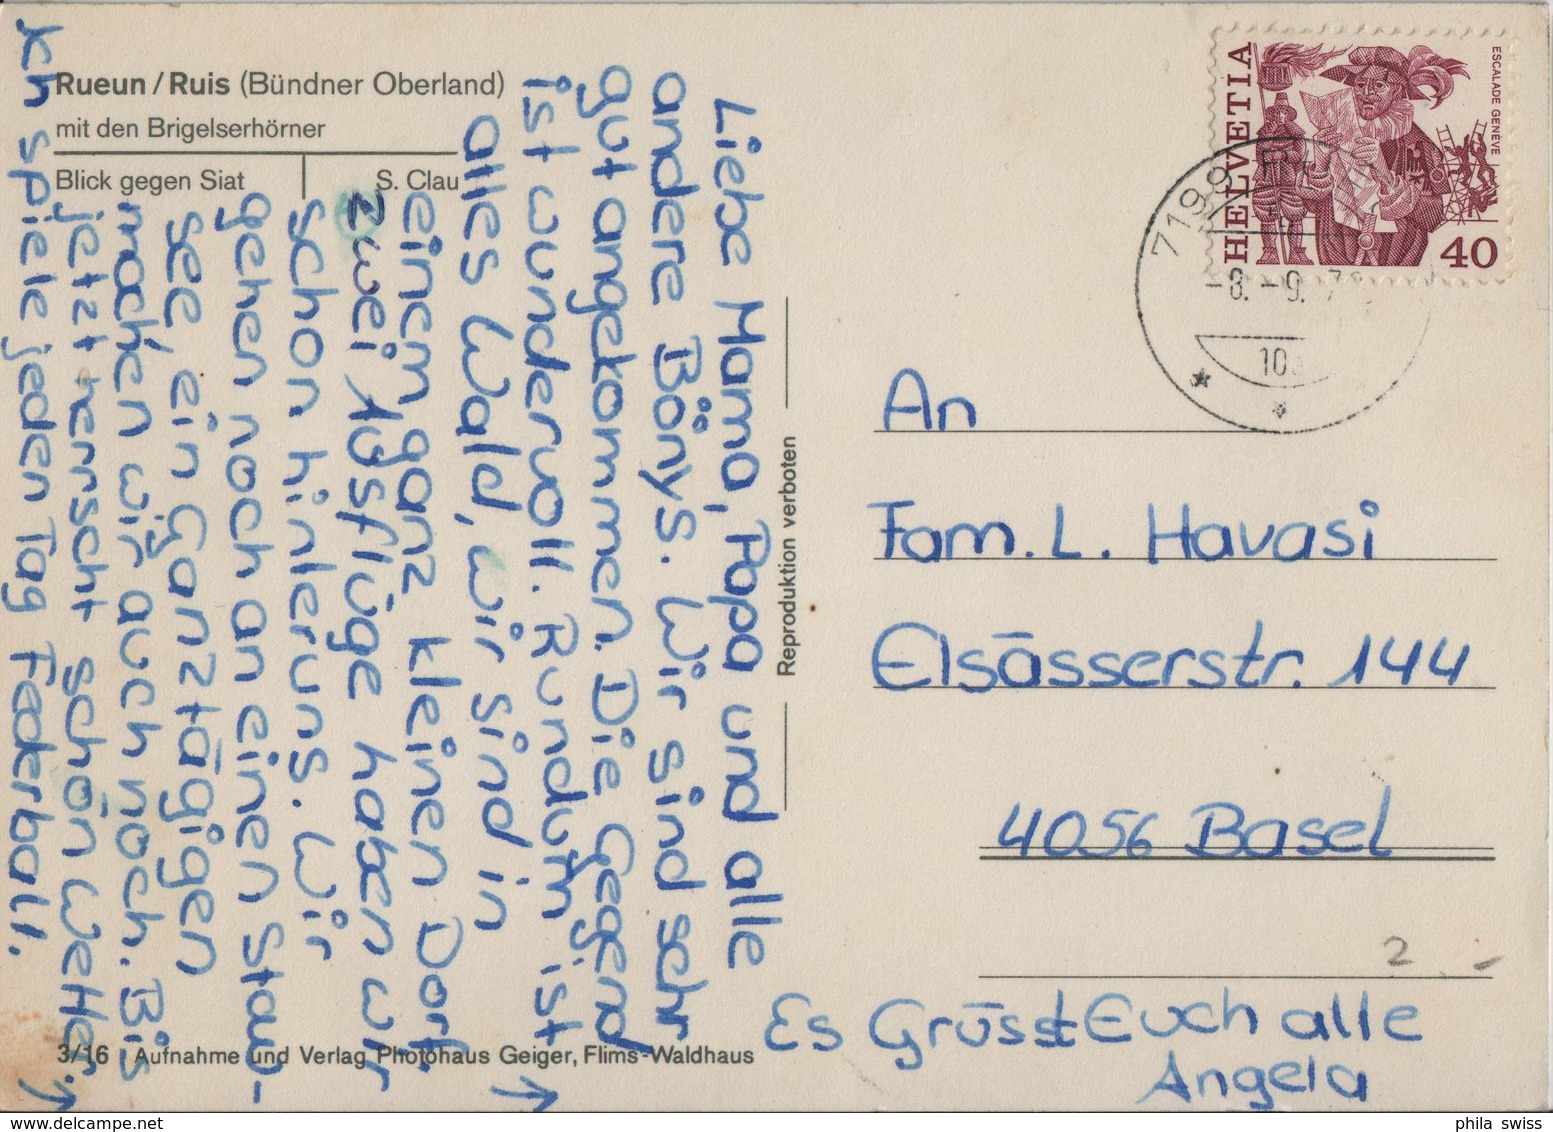 Rueun / Ruis (Bündner Oberland)
mit den Brigelserhörner
Blick gegen Siat
S. Clau
Liebe Mama, Papa und alle
andere Bönys. Wir sind sehr
gut angekommen. Die Gegend
ist wundervoll. Rundum ist
alles Wald, wir sind in
einem ganz kleinen Dorf.
zwei Ausflüge haben wir
schon hinter uns. Wir
gehen noch an einen Stau-
see, ein Ganztägigen
machen wir auch noch. Bis
jetzt herrscht schön Wetter.
Ich spiele jeden Tag Federball.
Es Grüsst Euch alle
Angela
Reproduktion verboten
3/16 Aufnahme und Verlag Photohaus Geiger, Flims-Waldhaus
HELVETIA
ESCALADE GENÈVE
40
7199
-8.-9.
An
Fam. L. Havasi
Elsässerstr. 144
4056 Basel
2.-
phila swiss